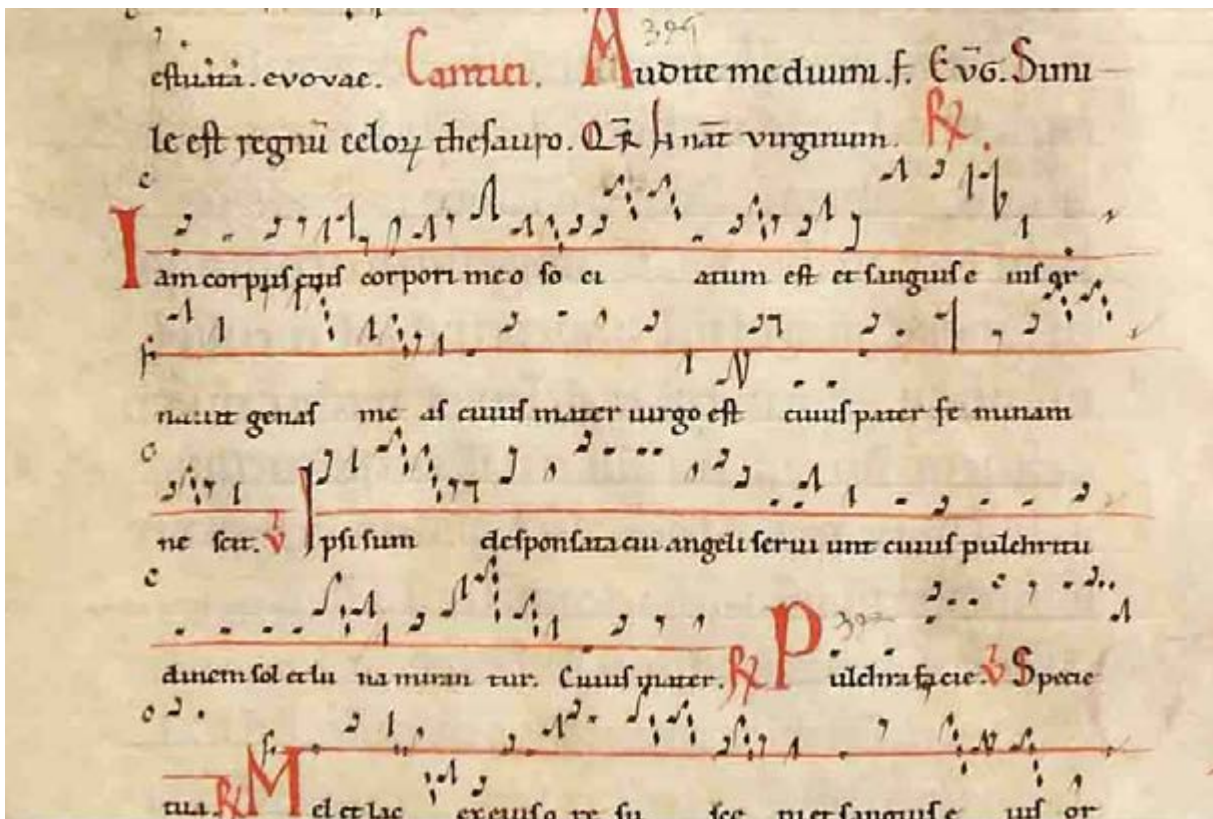 estiuitā. evovae. Cantici. Audite me diuini. f. Evḡ. Simi
le est regnū celoꝝ thesauro. virginum. ℟.
Iam corpus eius corpori meo so ci atum est et sanguis e ius or
nauit genas me as cuius mater uirgo est cuius pater fe minam
ne scit. ℣ Ipsi sum desponsata cui angeli serui unt cuius pulchritu
dinem sol et lu na miran tur. Cuius mater. ℟ Pulchra facie. ℣ Specie
tua. ℟ Mel et lac ex eius o re su sce pi et sanguis e ius or